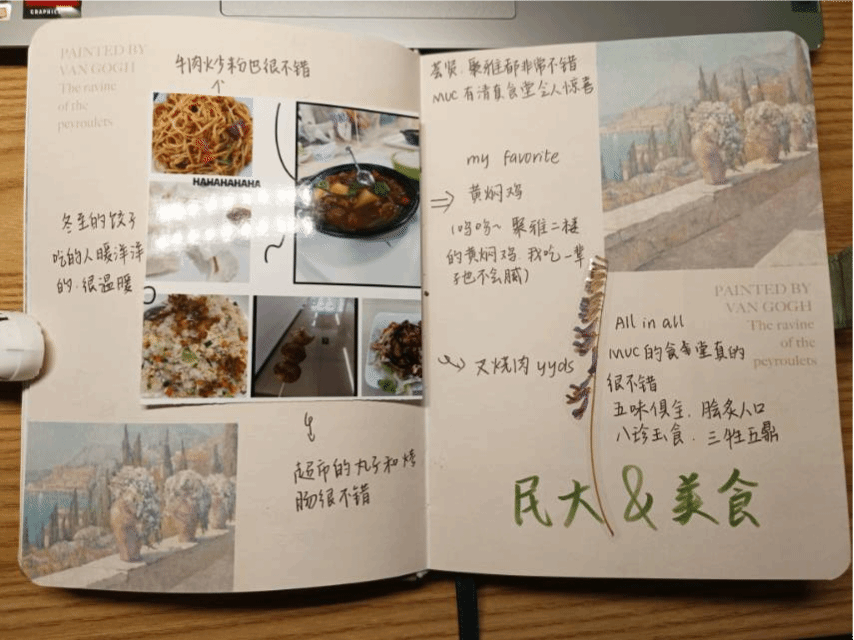 GRAPHIC
PAINTED BY
VAN GOGH
The ravine
of the
peyroulets
牛肉炒粉巴很不错
HAHAHAHAHA
冬至的饺子
吃的人暖洋洋
的.很温暖
超市的丸子和烤
肠很不错
荟贤.聚雅都非常不错
MUC有清真食堂令人惊喜
my favorite
黄焖鸡
(呜呜~聚雅二楼
的黄焖鸡.我吃一辈
子也不会腻)
叉烧肉yyds
PAINTED BY
VAN GOGH
The ravine
of the
peyroulets
All in all
MUC的食堂真的
很不错
五味俱全.脍炙人口
八珍玉食.三牲五鼎
民大&美食